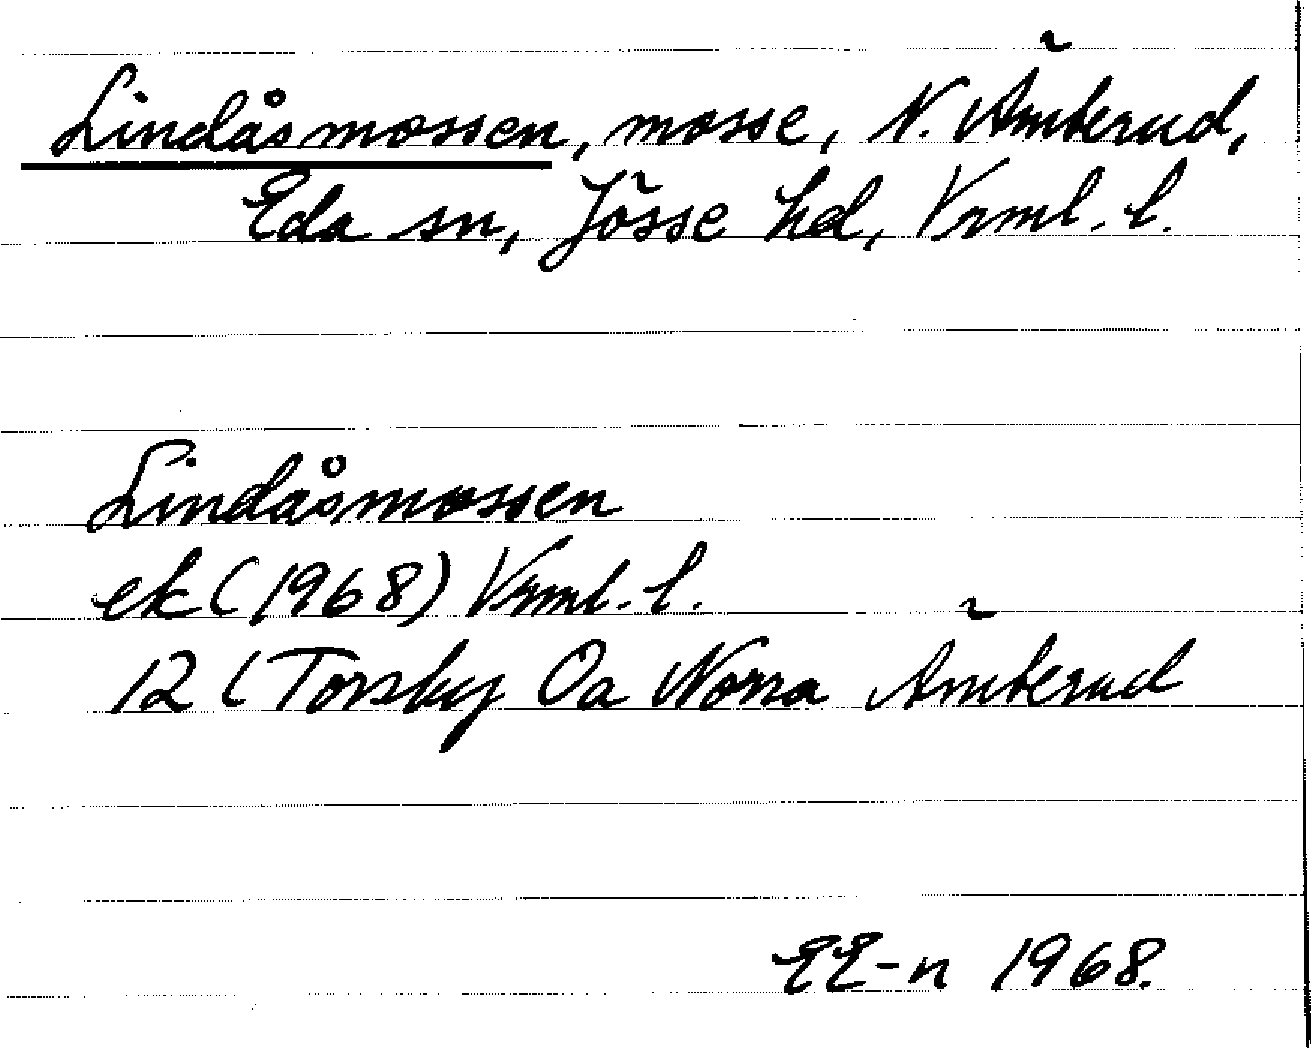 Lindåsmossen, mosse, N. Ämterud,
Eda sn, Jösse hd, Vrml. l.
Lindåsmossen
ek (1968) Vrml. l.
12 (Torsby Oa Norra Ämterud
EE-n 1968.